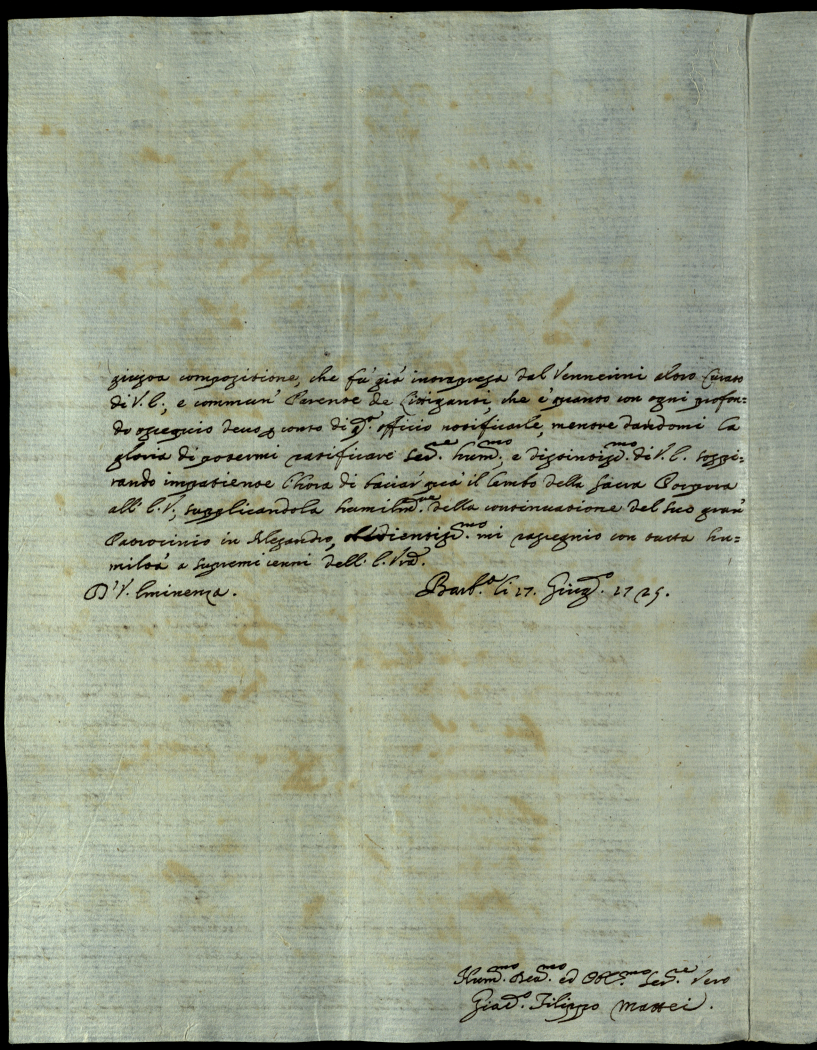 giusta compositione, che fù già intrapresa dal Vennerini altro Curato
di V. E., e commun' Parente de Litiganti, che è quanto con ogni profon=
do ossequio devo p conto di q.to officio notificarle, mentre dandomi la
gloria di potermi ratificare Ser.e hum.mo, e distintiss.mo di V. E. sospi=
rando impatiente l'hora di baciar quà il Lembo della Sacra Porpora
all' E. V., supplicandola humilm.te della continuatione del suo gran'
Patrocinio in Alesandro, mi rassegnio con tutta hu=
miltà a supremi cenni dell' E. Vra.
D' V. Eminenza. Barb.o li 17. Giug.o 1725.
Hum.mo Dev.mo ed Obl.mo Ser.e Vero
Giac.o Filippo Mattei.